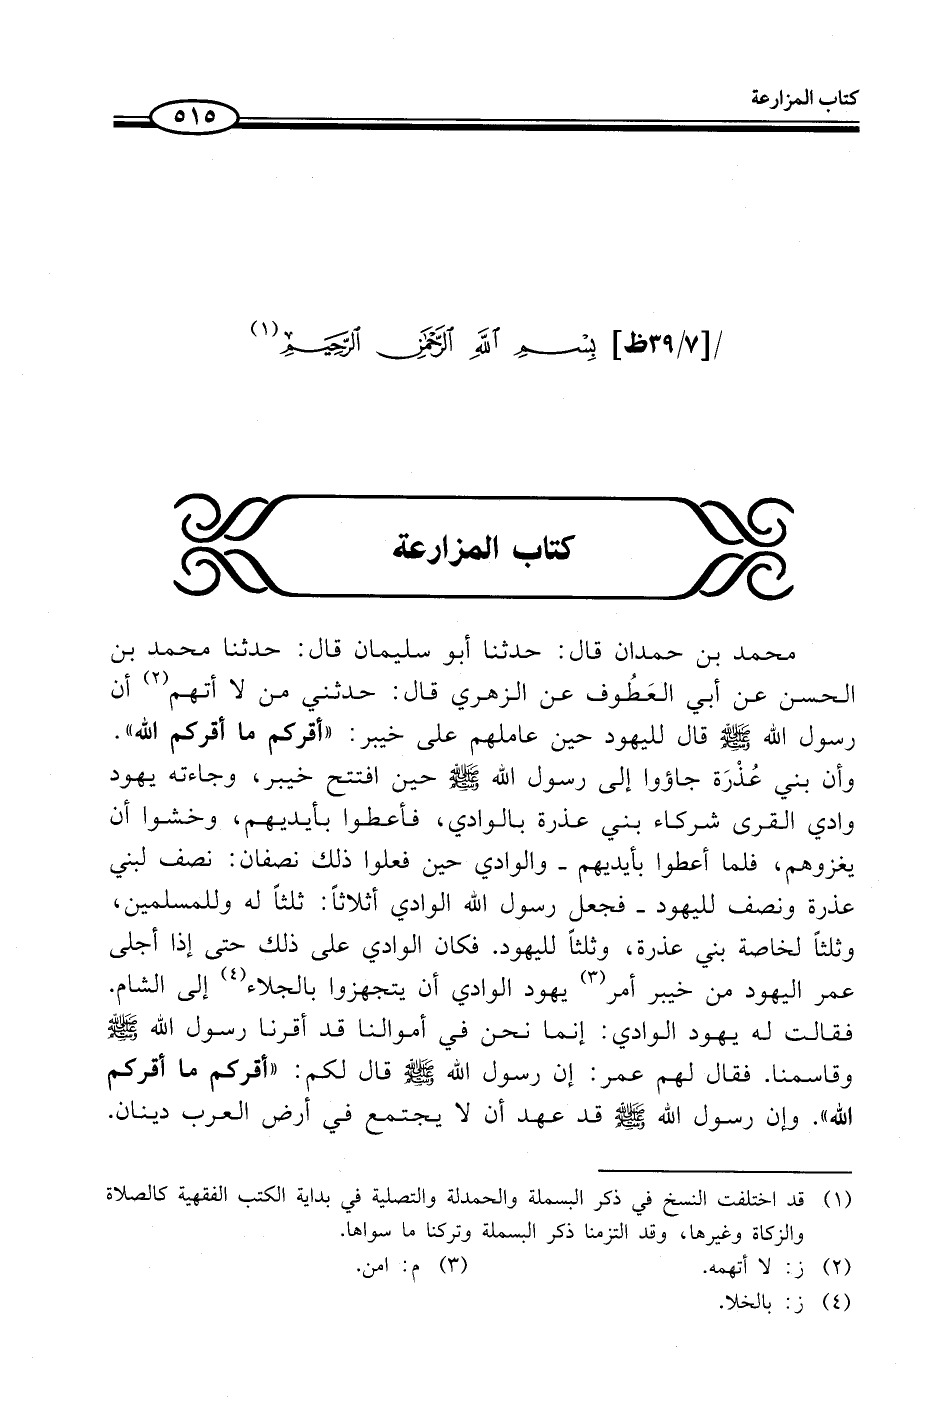 كتاب المزارعة
٥١٥
/[٣٩/٧ظ] بِسْمِ اللَّهِ الرَّحْمَٰنِ الرَّحِيمِ(١)
كتاب المزارعة
محمد بن حمدان قال: حدثنا أبو سليمان قال: حدثنا محمد بن
الحسن عن أبي العَطُوف عن الزهري قال: حدثني من لا أتهم(٢) أن
رسول الله ﷺ قال لليهود حين عاملهم على خيبر: «أقركم ما أقركم الله».
وأن بني عُذْرَة جاؤوا إلى رسول الله ﷺ حين افتتح خيبر، وجاءته يهود
وادي القرى شركاء بني عذرة بالوادي، فأعطوا بأيديهم، وخشوا أن
يغزوهم، فلما أعطوا بأيديهم ـ والوادي حين فعلوا ذلك نصفان: نصف لبني
عذرة ونصف لليهود ـ فجعل رسول الله الوادي أثلاثاً: ثلثاً له وللمسلمين،
وثلثاً لخاصة بني عذرة، وثلثاً لليهود. فكان الوادي على ذلك حتى إذا أجلى
عمر اليهود من خيبر أمر(٣) يهود الوادي أن يتجهزوا بالجلاء(٤) إلى الشام.
فقالت له يهود الوادي: إنما نحن في أموالنا قد أقرنا رسول الله ﷺ
وقاسمنا. فقال لهم عمر: إن رسول الله ﷺ قال لكم: «أقركم ما أقركم
الله». وإن رسول الله ﷺ قد عهد أن لا يجتمع في أرض العرب دينان.
(١) قد اختلفت النسخ في ذكر البسملة والحمدلة والتصلية في بداية الكتب الفقهية كالصلاة
والزكاة وغيرها، وقد التزمنا ذكر البسملة وتركنا ما سواها.
(٢) ز: لا أتهمه. (٣) م: امن.
(٤) ز: بالخلا.